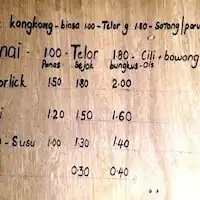 kangkong - biasa 1.00 - Telor g 1.80 - Sotong/paru
nai - 1.00 - Telor 1.80 - Cili + bawang
Panas Sejok bungkus - ais
orlick 1.50 1.80 2.00
i 1.20 1.50 1.60
- Susu 1.00 1.30 1.40
0.30 0.40